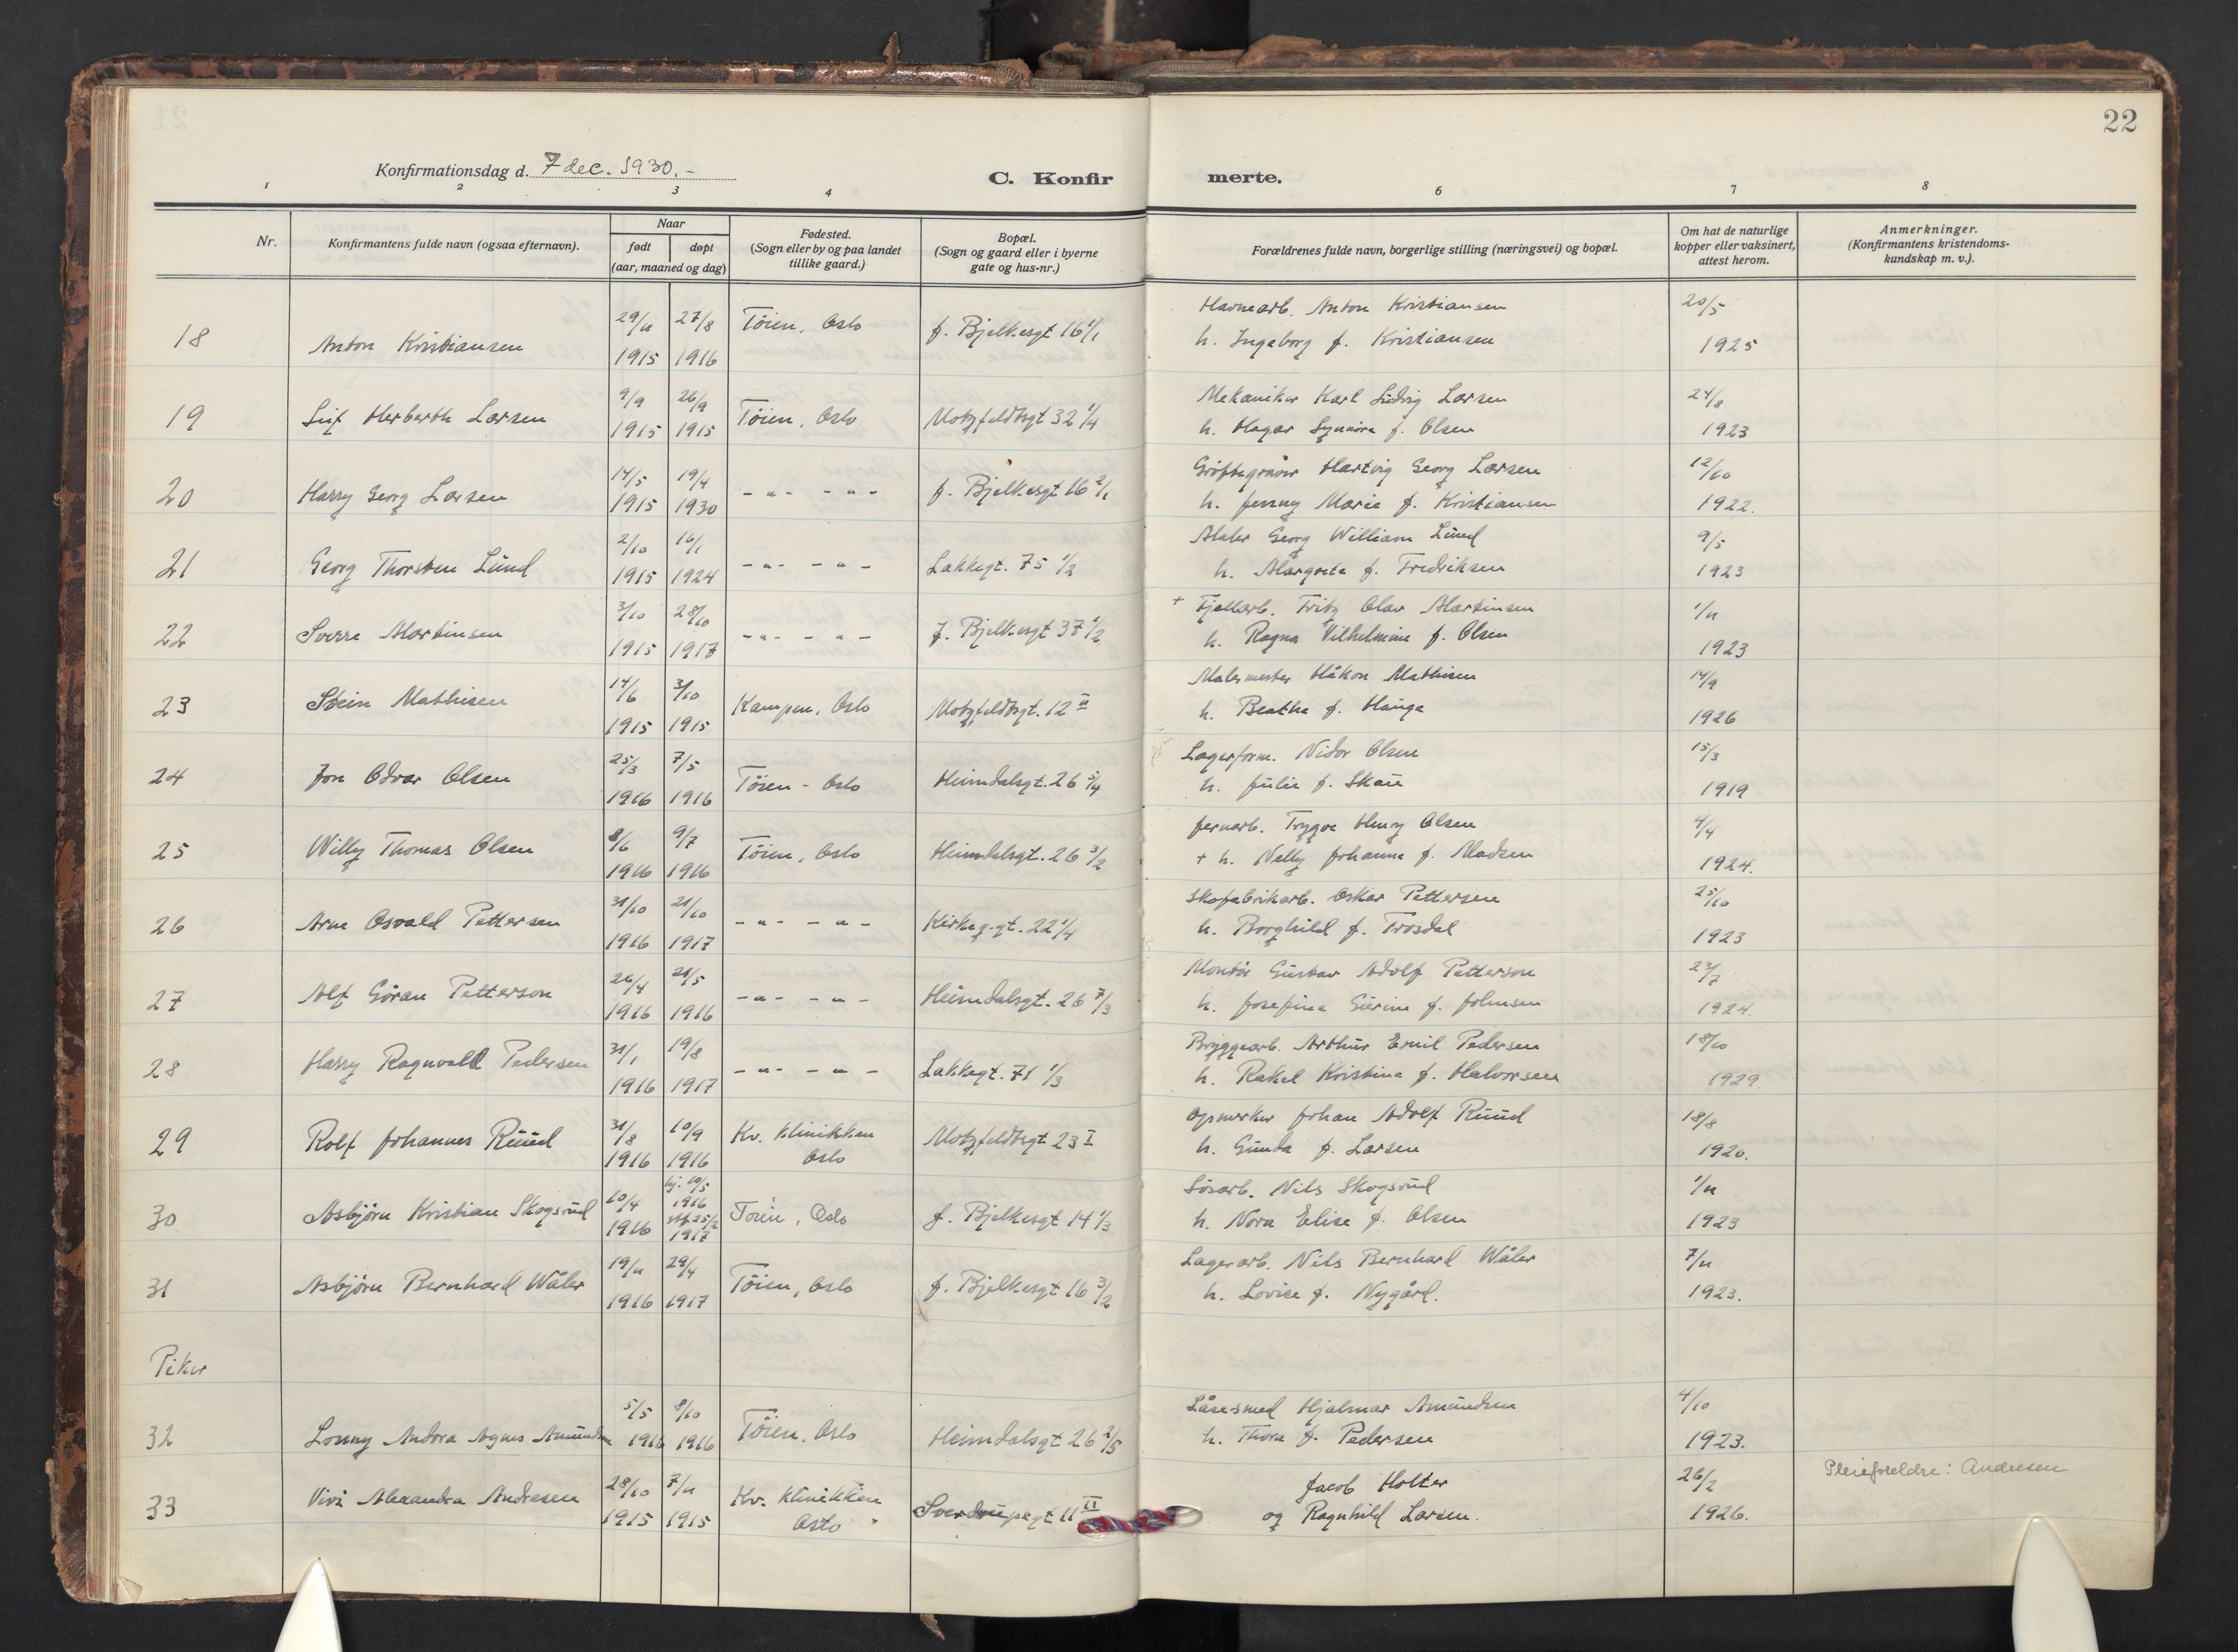 22
Konfirmationsdag d. 7 dec. 1930.-
C. Konfir merte.
1 2 3 4 6 7 8
Nr.
Konfirmantens fulde navn (ogsaa efternavn).
Naar
født døpt
(aar, maaned og dag)
Fødested.
(Sogn eller by og paa landet
tillike gaard.)
Bopæl.
(Sogn og gaard eller i byerne
gate og hus-nr.)
Forældrenes fulde navn, borgerlige stilling (næringsvei) og bopæl.
Om hat de naturlige
kopper eller vaksinert,
attest herom.
Anmerkninger.
(Konfirmantens kristendoms-
kundskap m. v.).
29/11 27/8 Töien, Oslo f. Bjelkesgt 16 1/1 Havnearb. Anton Kristiansen 20/5
18 Anton Kristiansen 1915 1916 h. Ingeborg f. Kristiansen 1925
9/9 26/9 Mekaniker Karl Ludvig Larsen 24/8
19 Leif Herberth Larsen 1915 1915 Töien, Oslo Motzfeldtsgt 32 1/4 h. Hagar Synnöve f. Olsen 1923
14/5 19/4 Gröftegraver Hartvig Georg Larsen 12/10
20 Harry Georg Larsen 1915 1930 - " - - " - f. Bjelkesgt 16 2/1 h. Jenny Marie f. Kristiansen 1922.
2/10 16/1 Maler Georg William Lund 9/5
21 Georg Thorsten Lund 1915 1924 - " - - " - Lakkegt. 75 1/2 h. Margrete f. Fredriksen 1923
3/10 28/10 + Fjellarb. Fritz Olav Martinsen 1/11
22 Sverre Martinsen 1915 1917 - " - - " - f. Bjelkesgt 37 1/2 h. Ragna Vilhelmine f. Olsen 1923
14/6 3/10 Malermester Håkon Mathisen 14/9
23 Stein Mathisen 1915 1915 Kampen, Oslo Motzfeldtsgt. 12 II h. Beathe f. Hauge 1926
25/3 7/5 Lagerform. Nidar Olsen 15/3
24 Jon Odvar Olsen 1916 1916 Töien - Oslo Heimdalsgt. 26 5/4 h. Julie f. Skau 1919
8/6 9/7 Jernarb. Trygve Henry Olsen 4/4
25 Willy Thomas Olsen 1916 1916 Töien, Oslo Heimdalsgt. 26 3/2 + h. Nelly Johanne f. Madsen 1924.
31/10 21/10 Skofabrikarb. Oskar Pettersen 25/10
26 Arne Osvald Pettersen 1916 1917 - " - - " - Kirkeg.gt. 22 1/4 h. Borghild f. Trosdal 1923
26/4 21/5 Montör Gustav Adolf Petterson 23/7
27 Alf Göran Petterson 1916 1916 - " - - " - Heimdalsgt. 26 7/3 h. Josefine Gurine f. Johnsen 1924.
31/1 19/8 Bryggearb. Arthur Emil Pedersen 18/10
28 Harry Ragnvald Pedersen 1916 1917 - " - - " - Lakkegt. 71 1/3 h. Rakel Kristine f. Halvorsen 1929.
31/8 10/9 Kv. klinikken Opmerker Johan Adolf Ruud 18/8
29 Rolf Johannes Ruud 1916 1916 Oslo Motzfeldtsgt 23 I h. Gunda f. Larsen 1920.
10/4 hj. 10/5 1916 Lösarb. Nils Skogsrud 1/11
30 Asbjörn Kristian Skogsrud 1916 stf 25/2 1917 Töien, Oslo f. Bjelkesgt 14 1/3 h. Nora Elise f. Olsen 1923
19/11 29/4 Lagerarb. Nils Bernhard Wåler 7/11
31 Asbjörn Bernhard Wåler 1916 1917 Töien, Oslo f. Bjelkesgt 16 3/2 h. Lovise f. Nygård. 1923.
Piker
5/5 8/10 Låsesmed Hjalmar Amundsen 4/10
32 Lonny Andora Agnes Amundsen 1916 1916 Töien, Oslo Heimdalsgt 26 2/5 h. Thora f. Pedersen 1923.
28/10 7/11 Kv. klinikken Jacob Holter 26/2 Pleieforeldre: Andresen
33 Vivi Alexandra Andresen 1915 1915 Oslo Sverdrupsgt 11 II og Ragnhild Larsen. 1926.